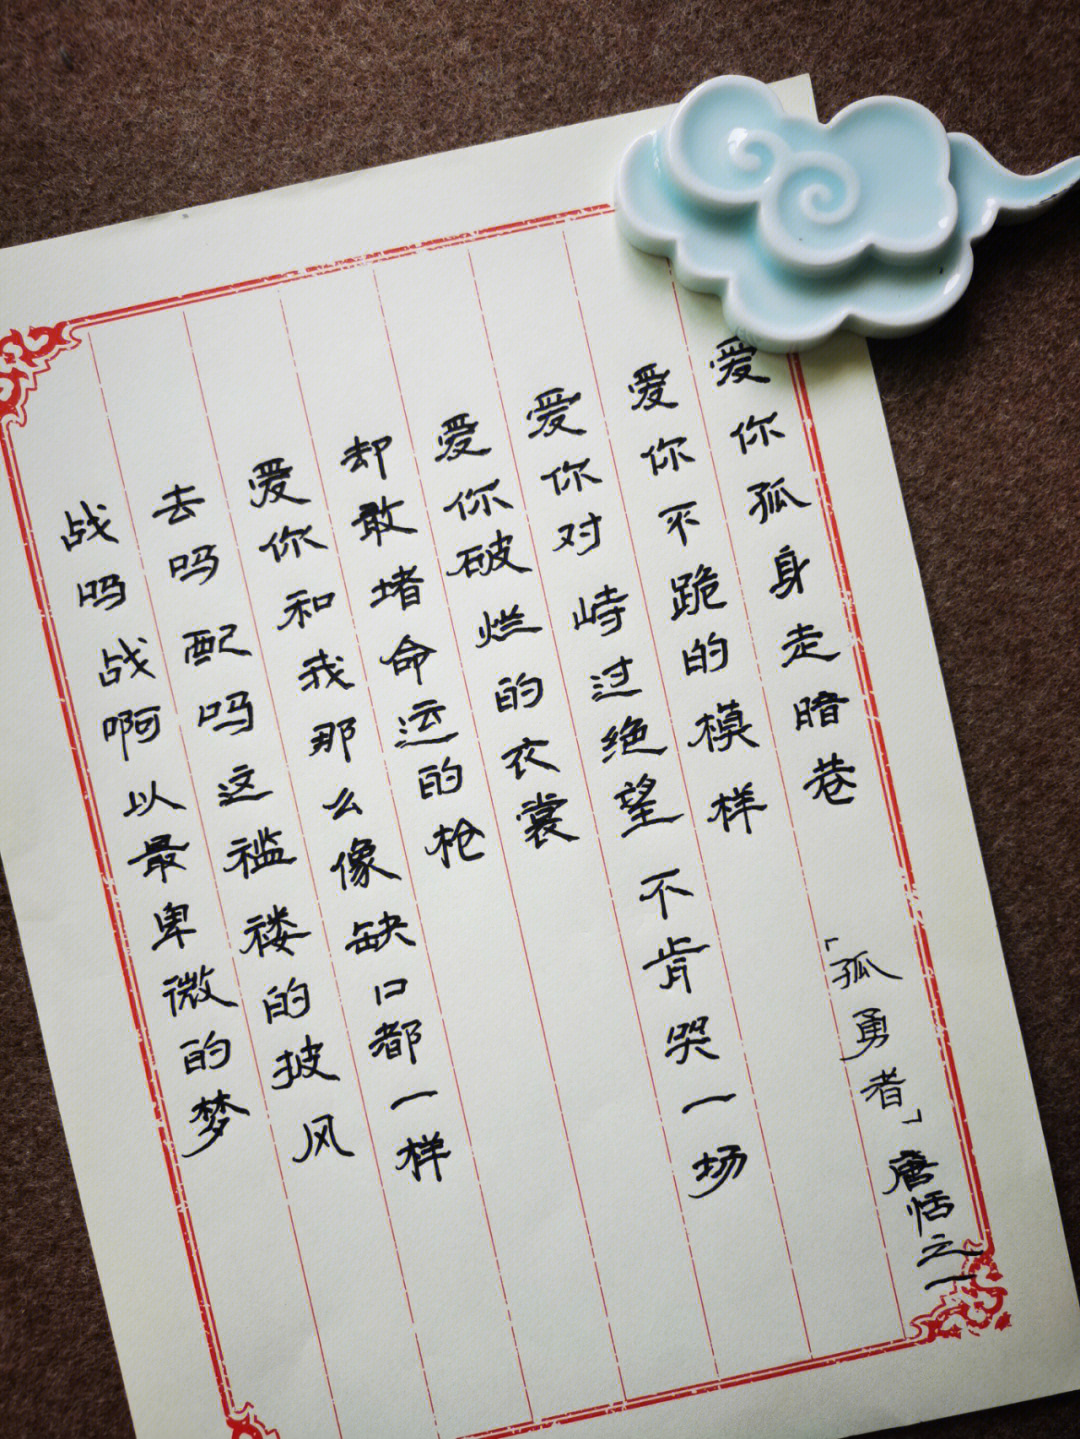 爱你孤身走暗巷
「孤勇者」唐恬之一
爱你不跪的模样
爱你对峙过绝望不肯哭一场
爱你破烂的衣裳
却敢堵命运的枪
爱你和我那么像缺口都一样
去吗配吗这褴褛的披风
战吗战啊以最卑微的梦